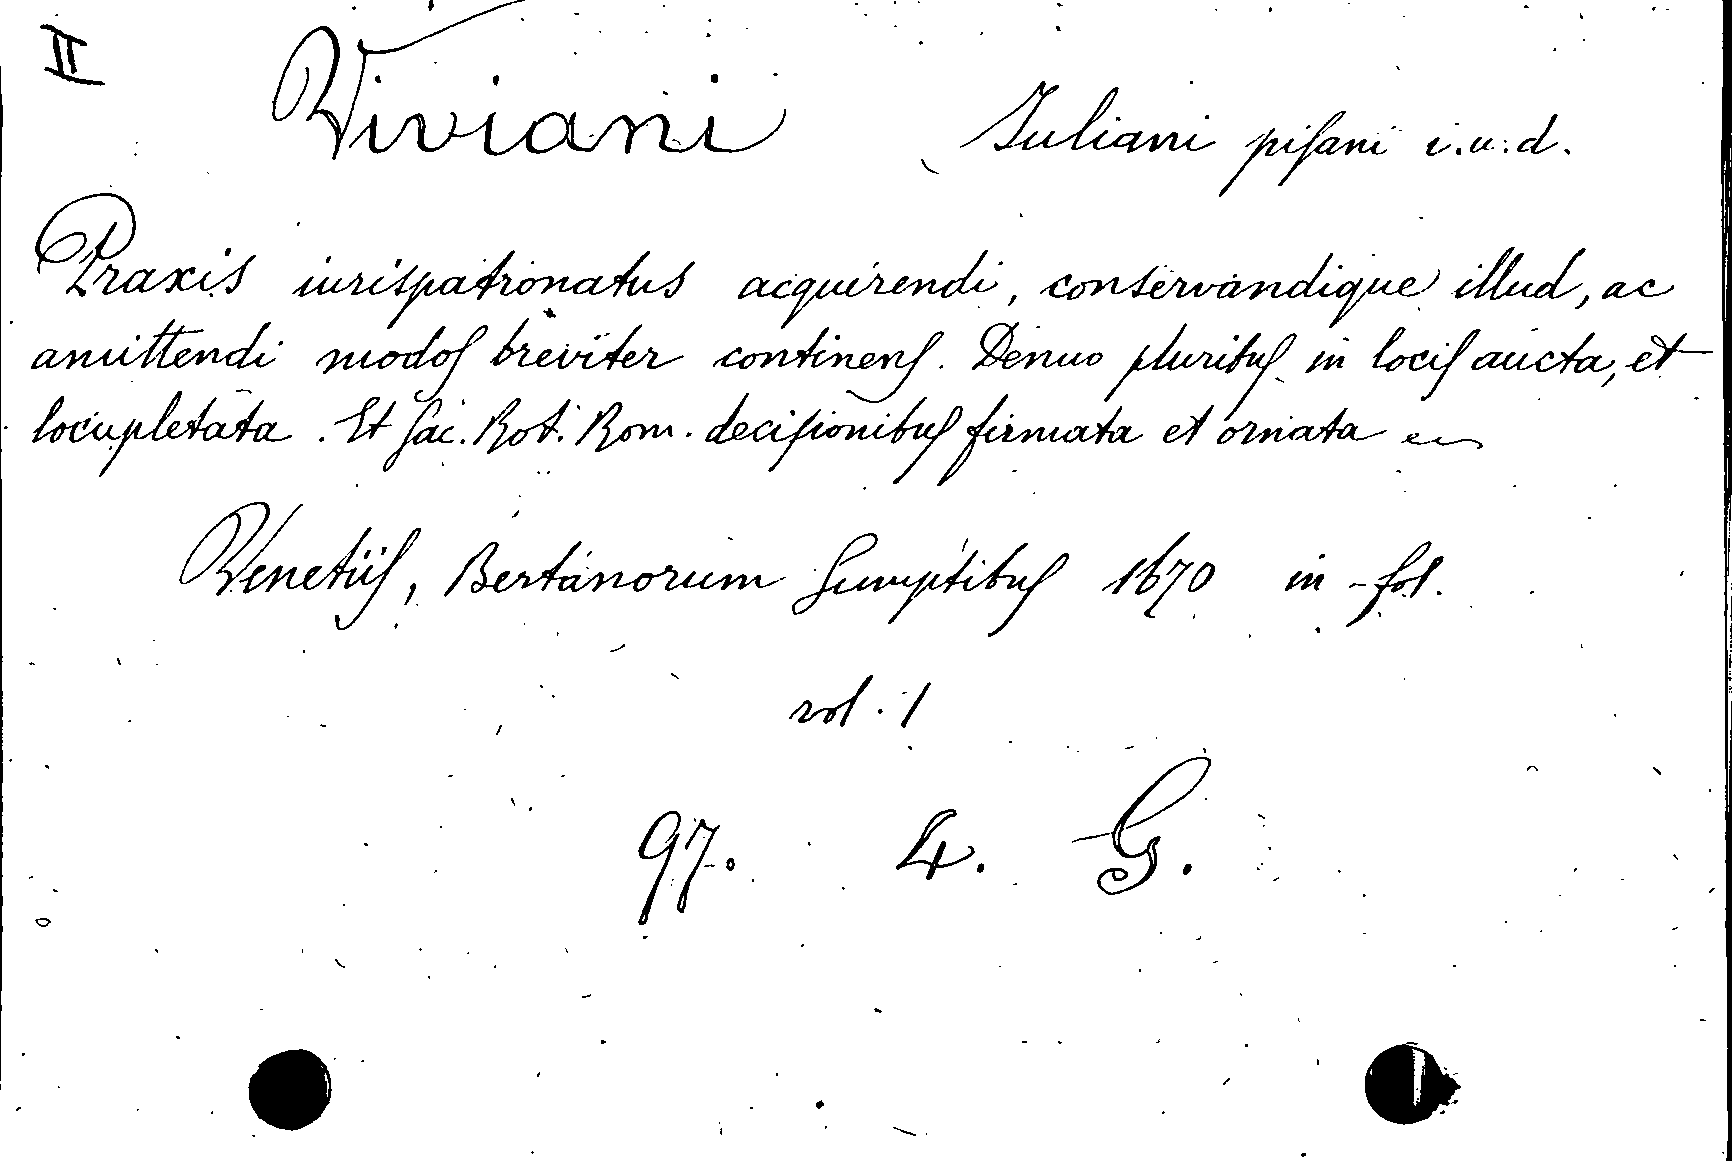 II
Viviani Iuliani pisani i.u.d.
Praxis iurispatronatus acquirendi, conservandique illud, ac
amittendi modos breviter continens. Denuo pluribus in locis aucta, et
locupletata. Et sac. Rot. Rom. decisionibus firmata et ornata
Venetiis, Bertanorum sumptibus 1670 in-fol.
vol. 1
97. 4. G.